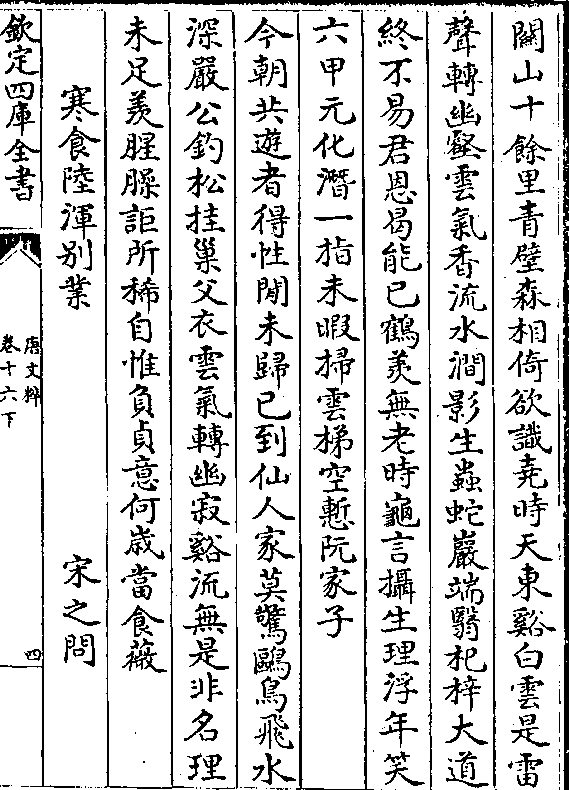 闕山十餘里青壁森相倚欲識堯時天東谿白雲是雷
聲轉幽壑雲氣香流水澗影生蟲蛇巖端翳杞梓大道
終不易君恩曷能已鶴羨無老時龜言攝生理浮年笑
六甲元化潛一指未暇掃雲梯空慙阮家子
今朝共遊者得性閒未歸已到仙人家莫驚鷗鳥飛水
深嚴公釣松挂巢父衣雲氣轉幽寂谿流無是非名理
未足羨腥臊詎所稀自惟負貞意何歲當食薇
寒食陸渾别業 宋之問
欽定四庫全書
唐文粹
卷十六下
四